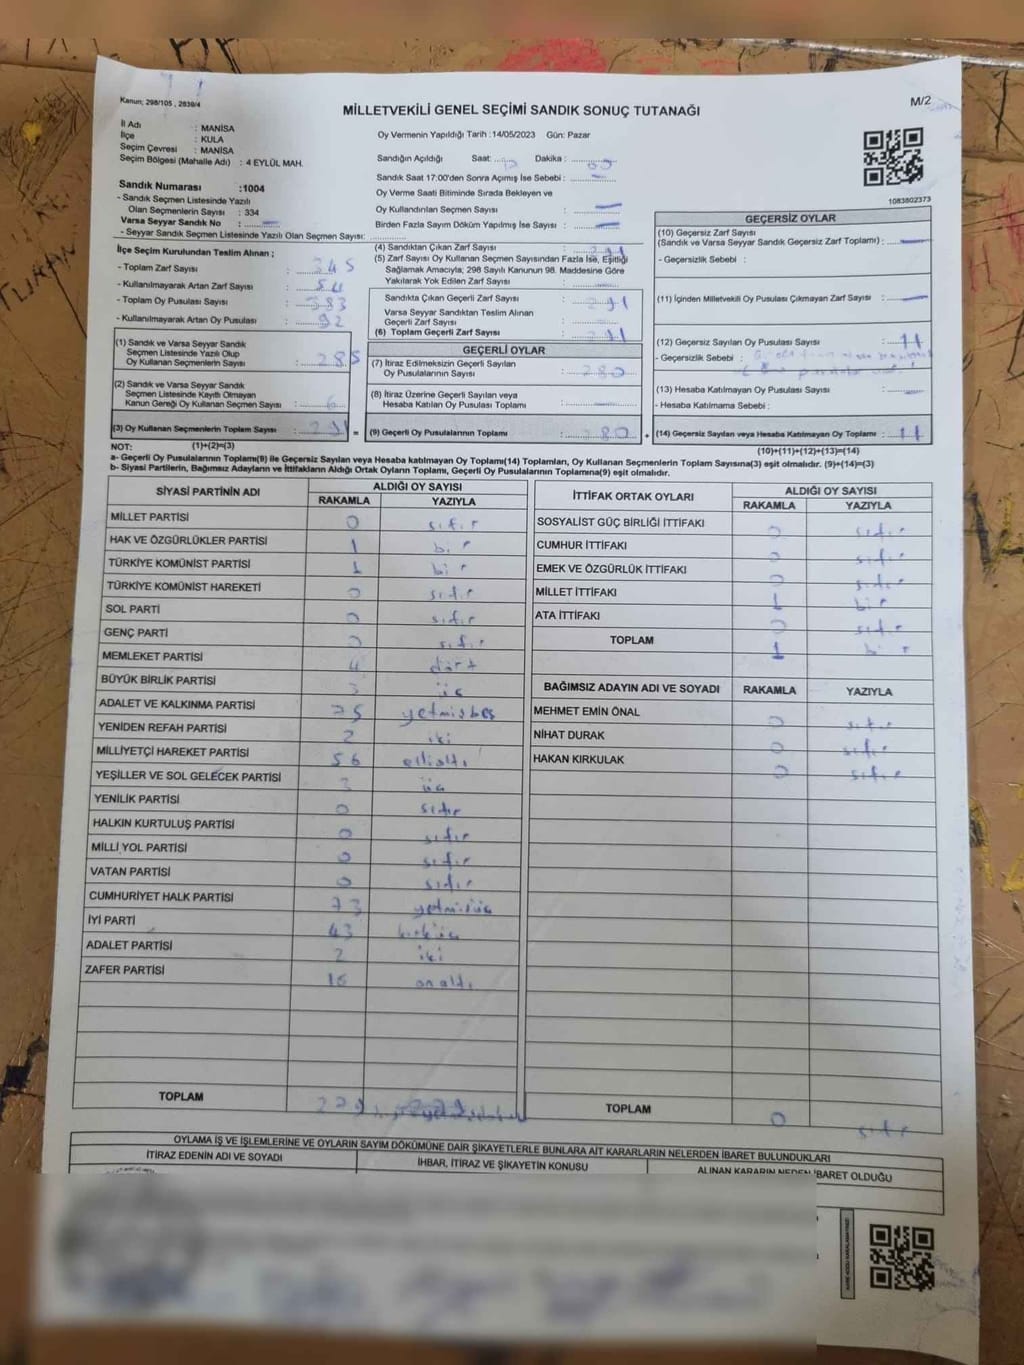 Kanun; 298/105 , 2839/4
M/2
MİLLETVEKİLİ GENEL SEÇİMİ SANDIK SONUÇ TUTANAĞI
İl Adı : MANİSA
İlçe : KULA
Seçim Çevresi : MANİSA
Seçim Bölgesi (Mahalle Adı) : 4 EYLÜL MAH.
Sandık Numarası :1004
- Sandık Seçmen Listesinde Yazılı
Olan Seçmenlerin Sayısı : 334
Varsa Seyyar Sandık No :
- Seyyar Sandık Seçmen Listesinde Yazılı Olan Seçmen Sayısı:
İlçe Seçim Kurulundan Teslim Alınan ;
- Toplam Zarf Sayısı : 345
- Kullanılmayarak Artan Zarf Sayısı : 54
- Toplam Oy Pusulası Sayısı : 383
- Kullanılmayarak Artan Oy Pusulası : 92
(1) Sandık ve Varsa Seyyar Sandık
Seçmen Listesinde Yazılı Olup
Oy Kullanan Seçmenlerin Sayısı : 285
(2) Sandık ve Varsa Seyyar Sandık
Seçmen Listesinde Kayıtlı Olmayan
Kanun Gereği Oy Kullanan Seçmen Sayısı : 6
(3) Oy Kullanan Seçmenlerin Toplam Sayısı : 291
Oy Vermenin Yapıldığı Tarih :14/05/2023 Gün: Pazar
Sandığın Açıldığı Saat: Dakika :
Sandık Saat 17:00'den Sonra Açımış İse Sebebi : —
Oy Verme Saati Bitiminde Sırada Bekleyen ve
Oy Kullandırılan Seçmen Sayısı : —
Birden Fazla Sayım Döküm Yapılmış İse Sayısı : —
(4) Sandıktan Çıkan Zarf Sayısı : 291
(5) Zarf Sayısı Oy Kullanan Seçmen Sayısından Fazla İse, Eşitliği
Sağlamak Amacıyla; 298 Sayılı Kanunun 98. Maddesine Göre
Yakılarak Yok Edilen Zarf Sayısı :
Sandıkta Çıkan Geçerli Zarf Sayısı : 291
Varsa Seyyar Sandıktan Teslim Alınan
Geçerli Zarf Sayısı :
(6) Toplam Geçerli Zarf Sayısı : 291
GEÇERLİ OYLAR
(7) İtiraz Edilmeksizin Geçerli Sayılan
Oy Pusulalarının Sayısı : 280
(8) İtiraz Üzerine Geçerli Sayılan veya
Hesaba Katılan Oy Pusulası Toplamı : —
= (9) Geçerli Oy Pusulalarının Toplamı : 280
1083802373
GEÇERSİZ OYLAR
(10) Geçersiz Zarf Sayısı
(Sandık ve Varsa Seyyar Sandık Geçersiz Zarf Toplamı) : —
- Geçersizlik Sebebi :
(11) İçinden Milletvekili Oy Pusulası Çıkmayan Zarf Sayısı : —
(12) Geçersiz Sayılan Oy Pusulası Sayısı : 11
- Geçersizlik Sebebi :
(13) Hesaba Katılmayan Oy Pusulası Sayısı : —
- Hesaba Katılmama Sebebi :
+ (14) Geçersiz Sayılan veya Hesaba Katılmayan Oy Toplamı : 11
NOT: (1)+(2)=(3)
(10)+(11)+(12)+(13)=(14)
a- Geçerli Oy Pusulası Toplamı(9) ile Geçersiz Sayılan veya Hesaba Katılmayan Oy Toplamı(14) Toplamları, Oy Kullanan Seçmenlerin Toplam Sayısına(3) eşit olmalıdır. (9)+(14)=(3)
b- Siyasi Partilerin, Bağımsız Adayların ve İttifakların Aldığı Ortak Oyların Toplamı, Geçerli Oy Pusulası Toplamına(9) eşit olmalıdır.
SİYASİ PARTİNİN ADI
ALDIĞI OY SAYISI
RAKAMLA YAZIYLA
MİLLET PARTİSİ 0 sıfır
HAK VE ÖZGÜRLÜKLER PARTİSİ 1 bir
TÜRKİYE KOMÜNİST PARTİSİ 1 bir
TÜRKİYE KOMÜNİST HAREKETİ 0 sıfır
SOL PARTİ 0 sıfır
GENÇ PARTİ 0 sıfır
MEMLEKET PARTİSİ 4 dört
BÜYÜK BİRLİK PARTİSİ 3 üç
ADALET VE KALKINMA PARTİSİ 75 yetmişbeş
YENİDEN REFAH PARTİSİ 2 iki
MİLLİYETÇİ HAREKET PARTİSİ 56 ellialtı
YEŞİLLER VE SOL GELECEK PARTİSİ 3 üç
YENİLİK PARTİSİ 0 sıfır
HALKIN KURTULUŞ PARTİSİ 0 sıfır
MİLLİ YOL PARTİSİ 0 sıfır
VATAN PARTİSİ 0 sıfır
CUMHURİYET HALK PARTİSİ 73 yetmişüç
İYİ PARTİ 43 kırküç
ADALET PARTİSİ 2 iki
ZAFER PARTİSİ 16 onaltı
TOPLAM 279
İTTİFAK ORTAK OYLARI
ALDIĞI OY SAYISI
RAKAMLA YAZIYLA
SOSYALİST GÜÇ BİRLİĞİ İTTİFAKI 0 sıfır
CUMHUR İTTİFAKI 0 sıfır
EMEK VE ÖZGÜRLÜK İTTİFAKI 0 sıfır
MİLLET İTTİFAKI 1 bir
ATA İTTİFAKI 0 sıfır
TOPLAM 1 bir
BAĞIMSIZ ADAYIN ADI VE SOYADI RAKAMLA YAZIYLA
MEHMET EMİN ÖNAL 0 sıfır
NİHAT DURAK 0 sıfır
HAKAN KIRKULAK 0 sıfır
TOPLAM 0 sıfır
OYLAMA İŞ VE İŞLEMLERİNE VE OYLARIN SAYIM DÖKÜMÜNE DAİR ŞİKAYETLERLE BUNLARA AİT KARARLARIN NELERDEN İBARET BULUNDUKLARI
İTİRAZ EDENİN ADI VE SOYADI İHBAR, İTİRAZ VE ŞİKAYETİN KONUSU ALINAN KARARIN NEDEN İBARET OLDUĞU